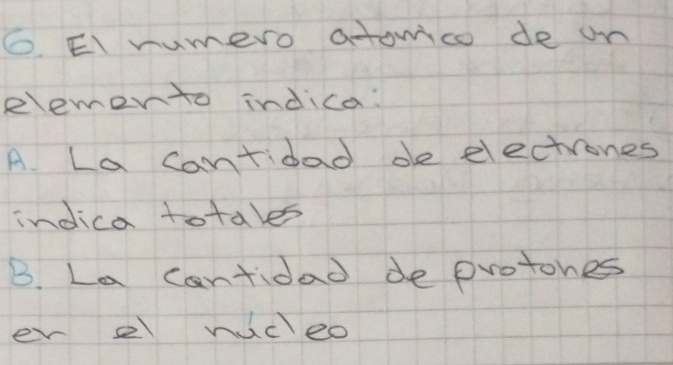 6. El numero atomico de un
elemento indica:
A. La cantidad de electrones
indica totales
B. La cantidad de protones
en el núcleo